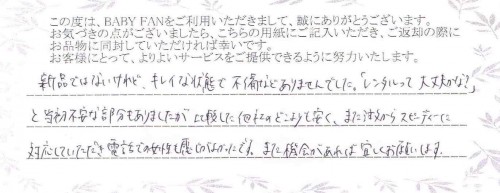 この度は、BABY FANをご利用いただきまして、誠にありがとうございます。
お気づきの点がございましたら、こちらの用紙にご記入いただき、ご返却の際に
お品物に同封していただければ幸いです。
お客様にとって、よりよいサービスをご提供できるように努力いたします。
新品ではないけれど、キレイな状態で不備などありませんでした。「レンタルって大丈夫かな?」
と当初不安な部分もありましたが比較した他社のどこよりも安く、また注文からスピーディーに
対応していただき電話での女性も感じがよかったです。また機会があれば宜しくお願いします。